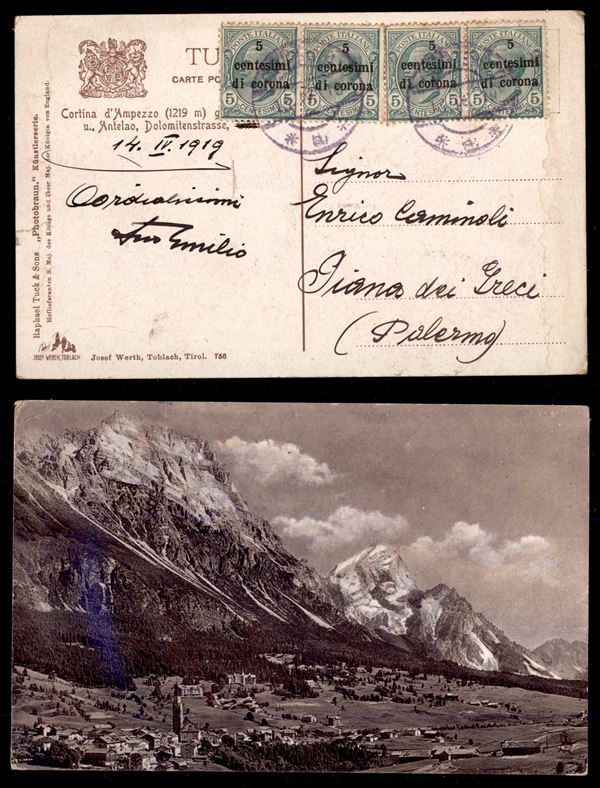 TU
CARTE PO
Cortina d'Ampezzo (1219 m) g
u.. Antelao, Dolomitenstrasse,
14. IV. 1919
Cordialissimi
Emilio
POSTE ITALIANE POSTE ITALIANE POSTE ITALIANE POSTE ITALIANE
5 5 5 5
centesimi centesimi centesimi centesimi
di corona di corona di corona di corona
5 CENTESIMI 5 5 CENTESIMI 5 5 CENTESIMI 5 5 CENTESIMI 5
Signor
Enrico Camminoli
Piana dei Greci
(Palermo)
Raphael Tuck & Sons „Photobraun." Künstlerserie.
Hoflieferanten S. Maj. des Königs und Ihrer Maj. der Königin von England.
JOSEF WERTH, TOBLACH
Josef Werth, Toblach, Tirol. 756